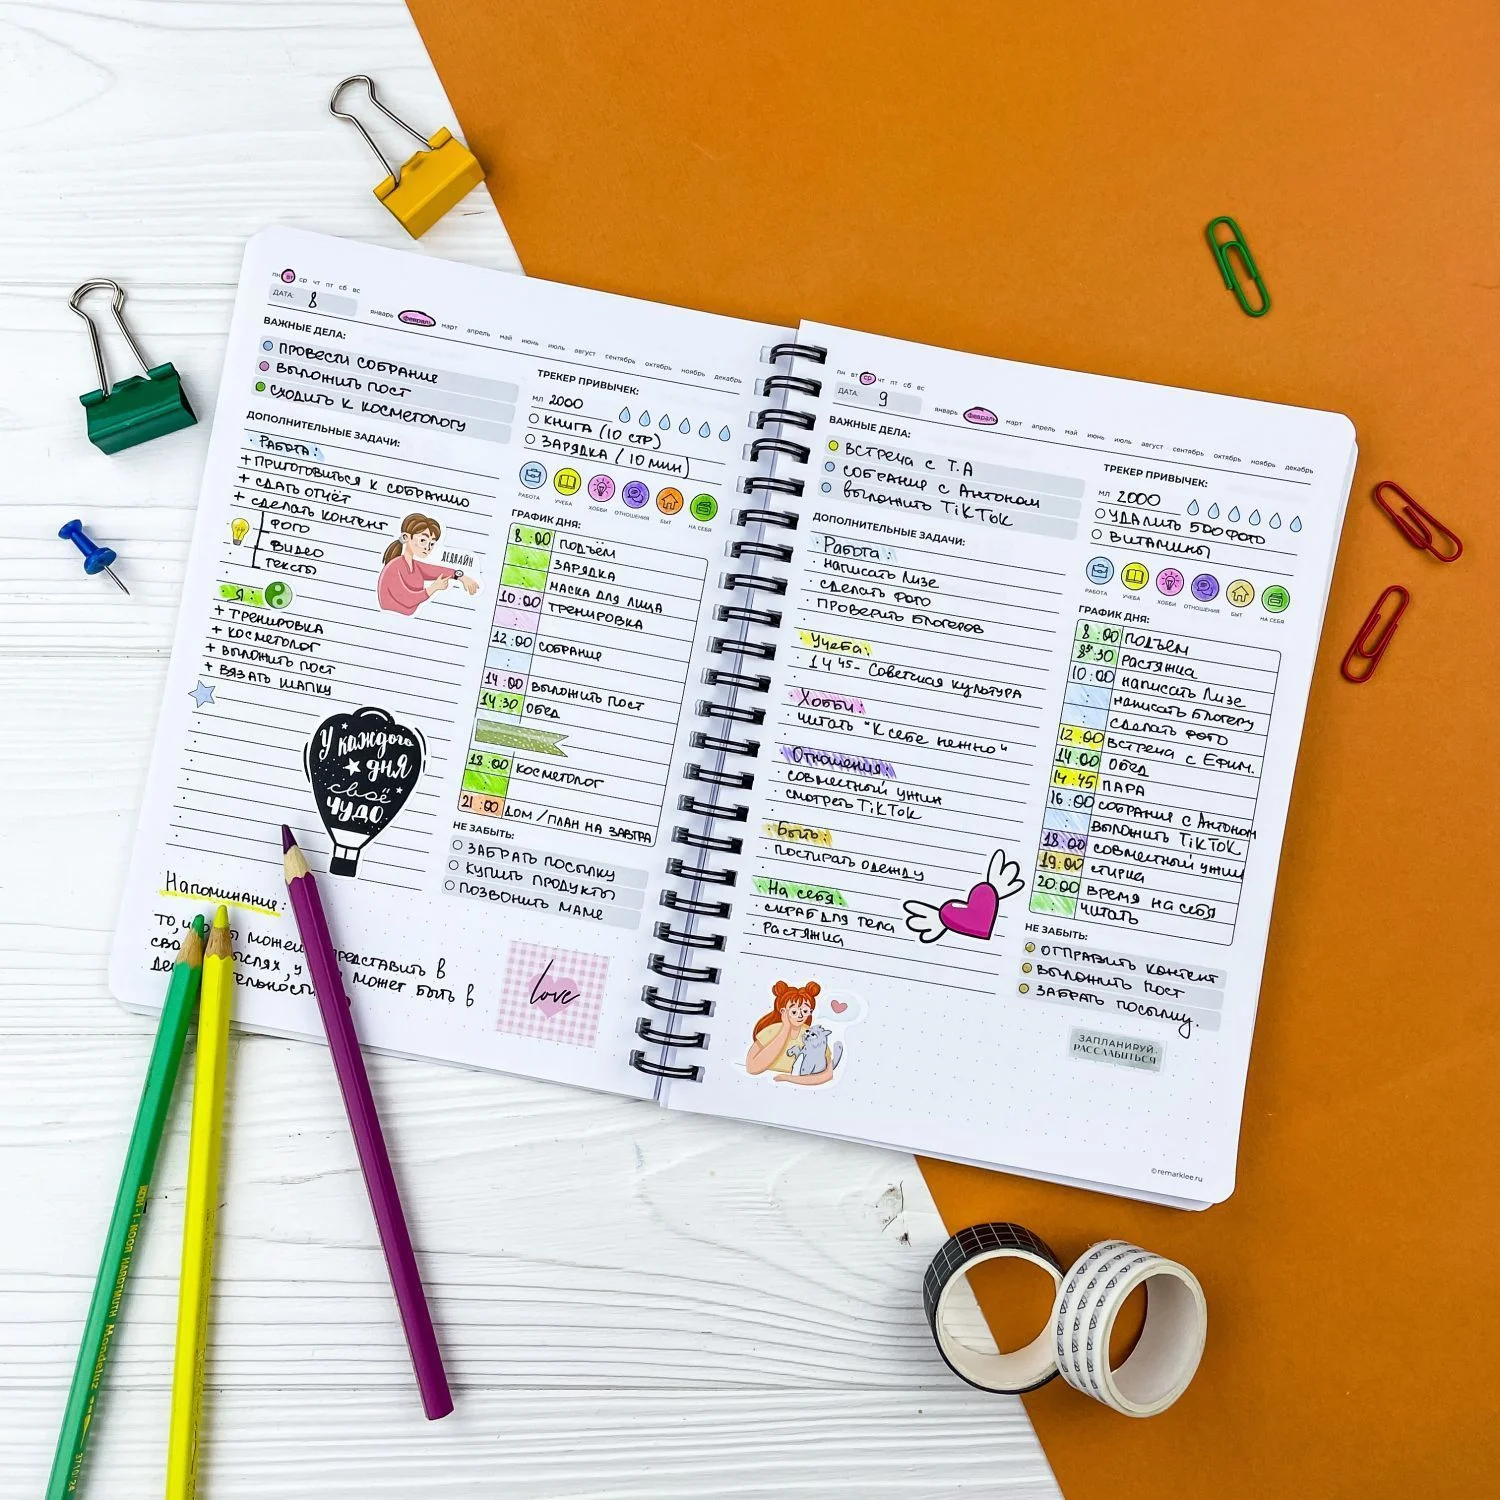 пн вт ср чт пт сб вс
ДАТА: 8
январь февраль март апрель май июнь июль август сентябрь октябрь ноябрь декабрь
ВАЖНЫЕ ДЕЛА:
ПРОВЕСТИ СОБРАНИЕ
ВЫЛОЖИТЬ ПОСТ
СХОДИТЬ К КОСМЕТОЛОГУ
ДОПОЛНИТЕЛЬНЫЕ ЗАДАЧИ:
РАБОТА:
+ ПРИГОТОВИТЬСЯ К СОБРАНИЮ
+ СДАТЬ ОТЧЁТ
+ СДЕЛАТЬ КОНТЕНТ
ФОТО
ВИДЕО
ТЕКСТЫ
ДЕДЛАЙН
Я:
+ ТРЕНИРОВКА
+ КОСМЕТОЛОГ
+ ВЫЛОЖИТЬ ПОСТ
+ ВЯЗАТЬ ШАПКУ
У каждого
дня
своё
чудо
Напоминание:
представить в
может быть в
ТРЕКЕР ПРИВЫЧЕК:
мл 2000
КНИГА (10 СТР)
ЗАРЯДКА (10 МИН)
РАБОТА УЧЕБА ХОББИ ОТНОШЕНИЯ БЫТ НА СЕБЯ
ГРАФИК ДНЯ:
8:00 ПОДЪЁМ
ЗАРЯДКА
МАСКА ДЛЯ ЛИЦА
10:00 ТРЕНИРОВКА
12:00 СОБРАНИЕ
14:00 ВЫЛОЖИТЬ ПОСТ
14:30 ОБЕД
18:00 КОСМЕТОЛОГ
21:00 ДОМ/ПЛАН НА ЗАВТРА
НЕ ЗАБЫТЬ:
ЗАБРАТЬ ПОСЫЛКУ
КУПИТЬ ПРОДУКТЫ
ПОЗВОНИТЬ МАМЕ
love
пн вт ср чт пт сб вс
ДАТА: 9
январь февраль март апрель май июнь июль август сентябрь октябрь ноябрь декабрь
ВАЖНЫЕ ДЕЛА:
ВСТРЕЧА С Т.А
СОБРАНИЕ С АНТОНОМ
ВЫЛОЖИТЬ TikTok
ДОПОЛНИТЕЛЬНЫЕ ЗАДАЧИ:
Работа:
НАПИСАТЬ ЛИЗЕ
СДЕЛАТЬ ФОТО
ПРОВЕРИТЬ БЛОГЕРОВ
Учеба:
14 45 - СОВЕТСКАЯ КУЛЬТУРА
Хобби:
ЧИТАТЬ "К СЕБЕ НЕЖНО"
Отношения:
СОВМЕСТНЫЙ УЖИН
СМОТРЕТЬ TikTok
Быть:
ПОСТИРАТЬ ОДЕЖДУ
На себя:
СКРАБ ДЛЯ ТЕЛА
РАСТЯЖКА
ТРЕКЕР ПРИВЫЧЕК:
мл 2000
УДАЛИТЬ 500 ФОТО
ВИТАМИНЫ
РАБОТА УЧЕБА ХОББИ ОТНОШЕНИЯ БЫТ НА СЕБЯ
ГРАФИК ДНЯ:
8:00 ПОДЪЁМ
8:30 РАСТЯЖКА
10:00 НАПИСАТЬ ЛИЗЕ
НАПИСАТЬ БЛОГЕРУ
СДЕЛАТЬ ФОТО
12:00 ВСТРЕЧА С ЕФИМ.
14:00 ОБЕД
14:45 ПАРА
16:00 СОБРАНИЕ С АНТОНОМ
ВЫЛОЖИТЬ TikTok
18:00 СОВМЕСТНЫЙ УЖИН
19:00 СТИРКА
20:00 ВРЕМЯ НА СЕБЯ
ЧИТАТЬ
НЕ ЗАБЫТЬ:
ОТПРАВИТЬ КОНТЕНТ
ВЫЛОЖИТЬ ПОСТ
ЗАБРАТЬ ПОСЫЛКУ.
ЗАПЛАНИРУЙ..
РАССЛАБИТЬСЯ
©remarklee.ru
KOH-I-NOOR HARDTMUTH Mondeluz